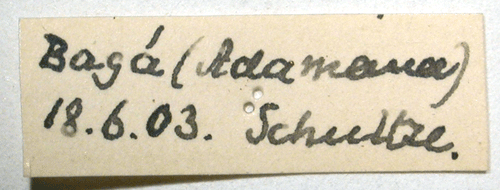 Bagá (Adamaua)
18.6.03. Schultze.